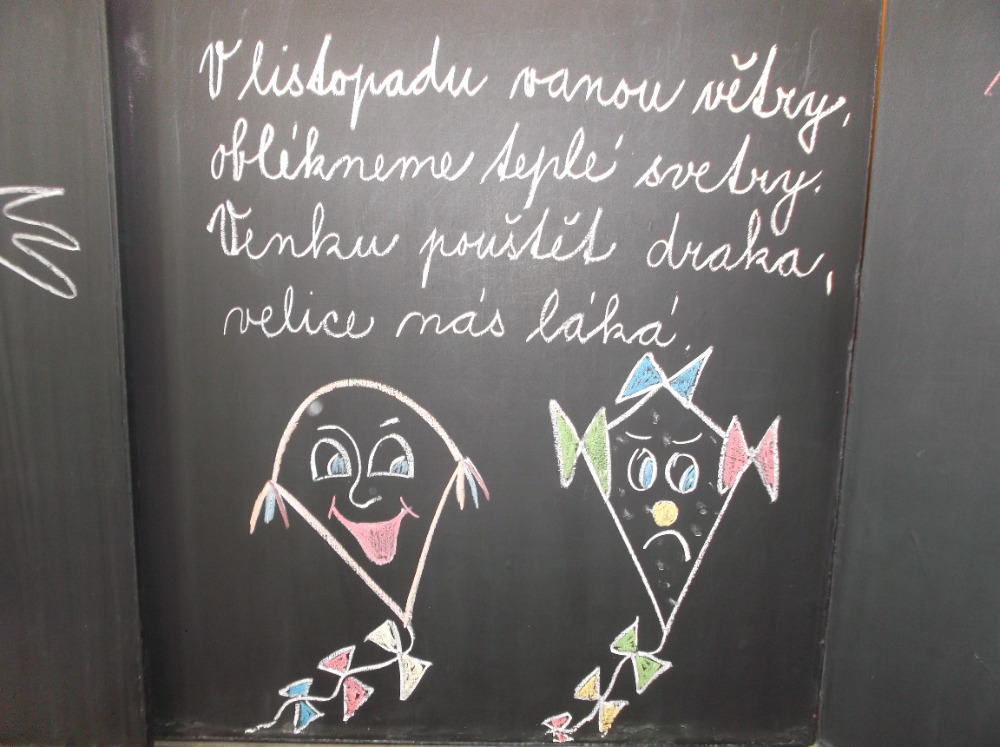 V listopadu vanou větry,
oblékneme teplé svetry.
Venku pouštět draka,
velice nás láká.